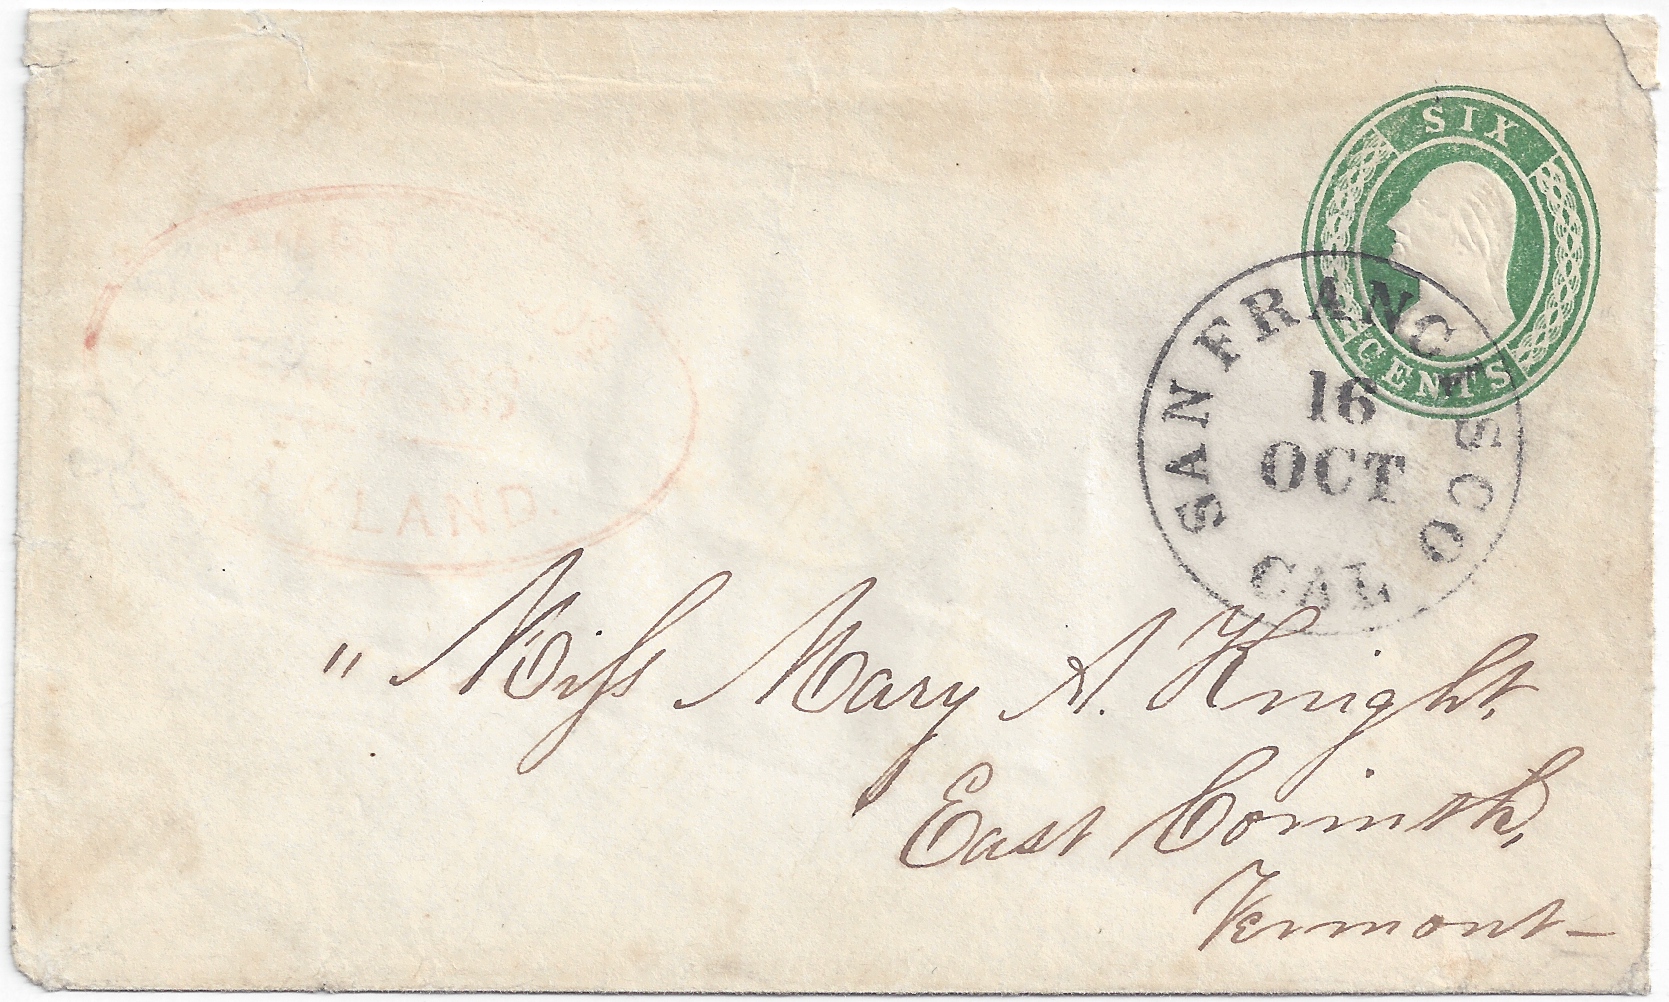 SIX
CENTS
SAN FRANCISCO
16
OCT
CAL
LAND.
" Miss Mary A. Knight,
East Corinth,
Vermont—